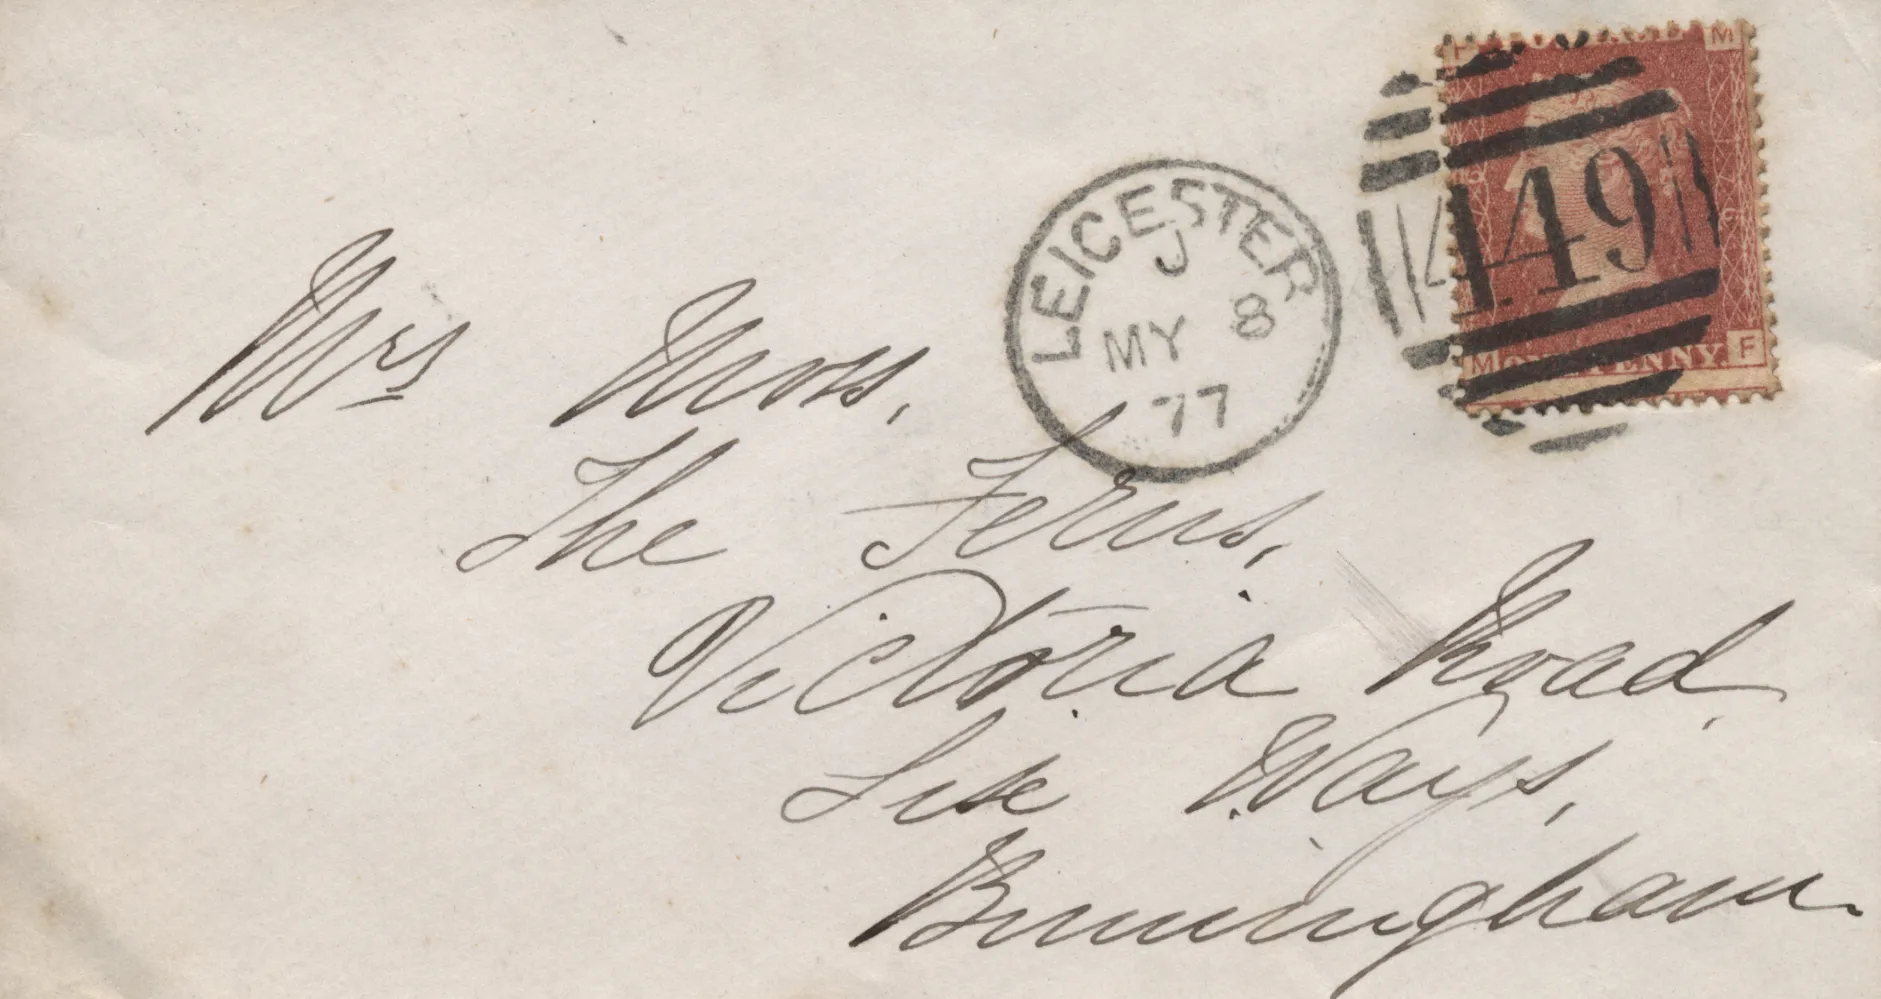 LEICESTER
J
MY 8
77
F M
449
M ONE PENNY. F
Mrs Moss,
The Ferns,
Victoria Road,
Six Ways,
Birmingham.